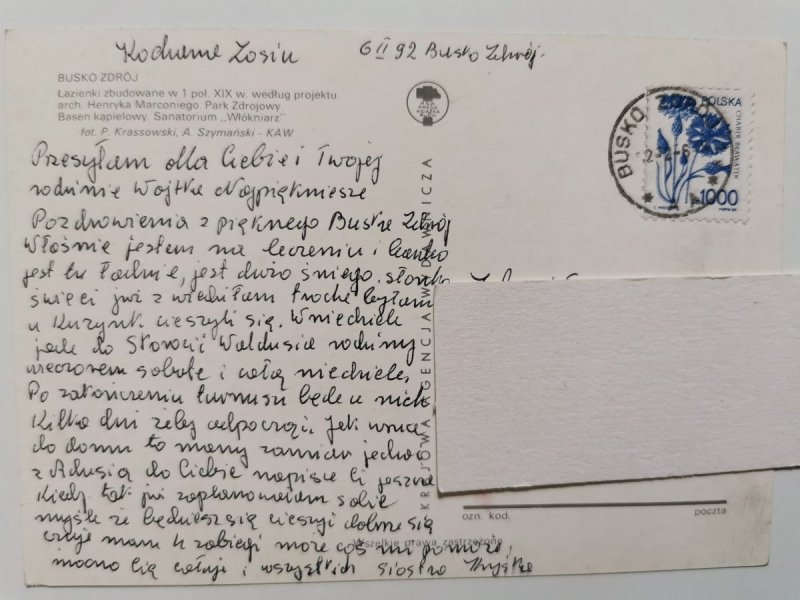 Kochana Zosiu
6 II 92 Busko Zdrój.
BUSKO ZDRÓJ
Łazienki zbudowane w 1 poł. XIX w. według projektu
arch. Henryka Marconiego. Park Zdrojowy.
Basen kąpielowy. Sanatorium „Włókniarz"
fot. P. Krassowski, A. Szymański - KAW
Przesyłam dla Ciebie i Twojej
rodzinie Wojtka Najpiękniesze
Pozdrowienia z pięknego Buska Zdrój
Właśnie jestem na leczeniu i bardzo
jest tu ładnie, jest dużo śniegu. słonko
święci już z wiedziłam trochę byłam
u Kuzynk. cieszyli się. W niedziele
jade do Waldusia rodziny
wieczorem sobote i całą niedziele,
Po zakończeniu turnusu będe u nich
Kilka dni żeby odpocząć. Jak wróce
do domu to mamy zamiar jechać
z Adusią do Ciebie napisze Ci jeszcze
Kiedy tak już zaplanowałam sobie
myśle że będziesz się cieszyć dobrze się
czuje mam 4 zabiegi może coś mi pomoże,
mocno Cię całuje i wszystkich siostra Kryśka
KRAJOWA AGENCJA WYDAWNICZA
Wszelkie prawa zastrzeżone
RSW
PRASA
KSIĄŻKA
RUCH
BUSKO ZDRÓJ
POLSKA
CHABER BŁAWATEK
1000
ozn. kod.
poczta